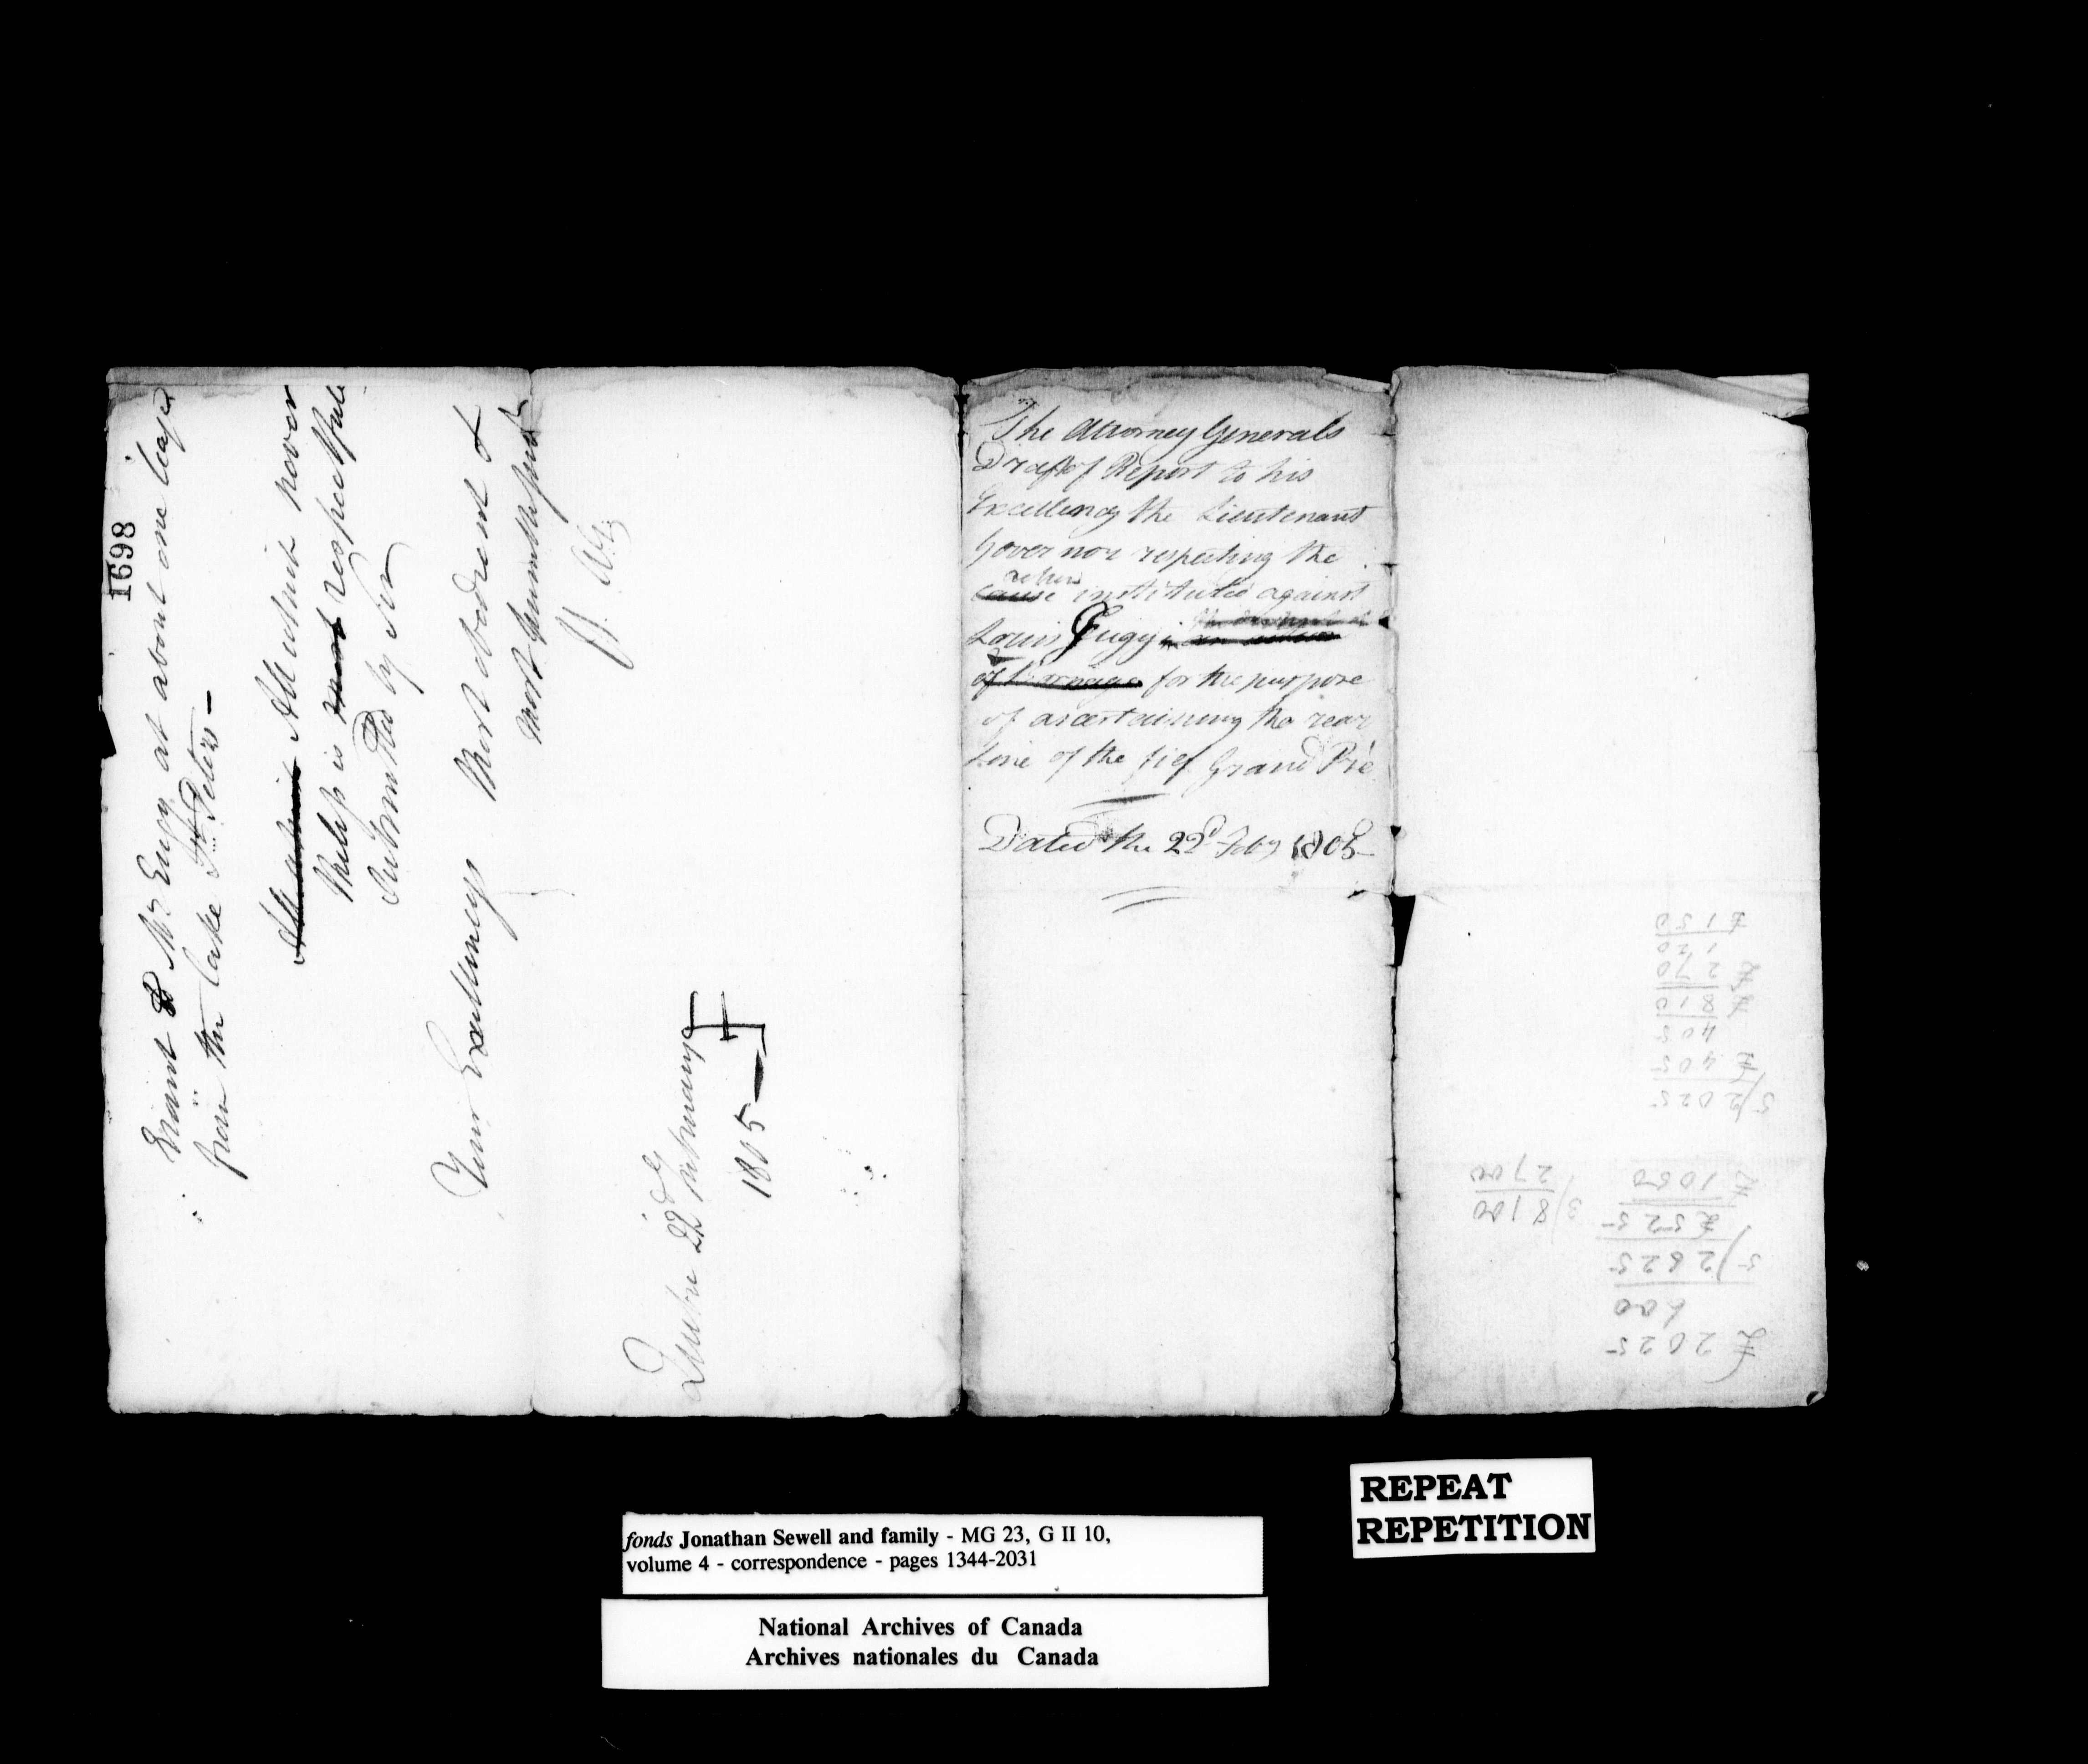 1698
Grant to Mr Gugy at about one league
from the Lake St. Peters —
All which never
theless is most respectfully
submitted by Sir
Your Excellencys Most obedient &
most humble servt
J. S. A.G.
Quebec 22d February
1805 —
The Attorney Generals
Draft of Report to his
Excellency the Lieutenant
Governor respecting the
action
Cause instituted against
Louis Gugy in an action
of for the purpose
of ascertaining the rear
Line of the fief Grand Pré
Dated the 22d Feby 1805—
£ 2025
600
5) 2625
£525
1050
3) 8100
2700
5) 2025
405
405
810
270
120
£150
fonds Jonathan Sewell and family - MG 23, G II 10,
volume 4 - correspondence - pages 1344-2031
National Archives of Canada
Archives nationales du Canada
REPEAT
REPETITION